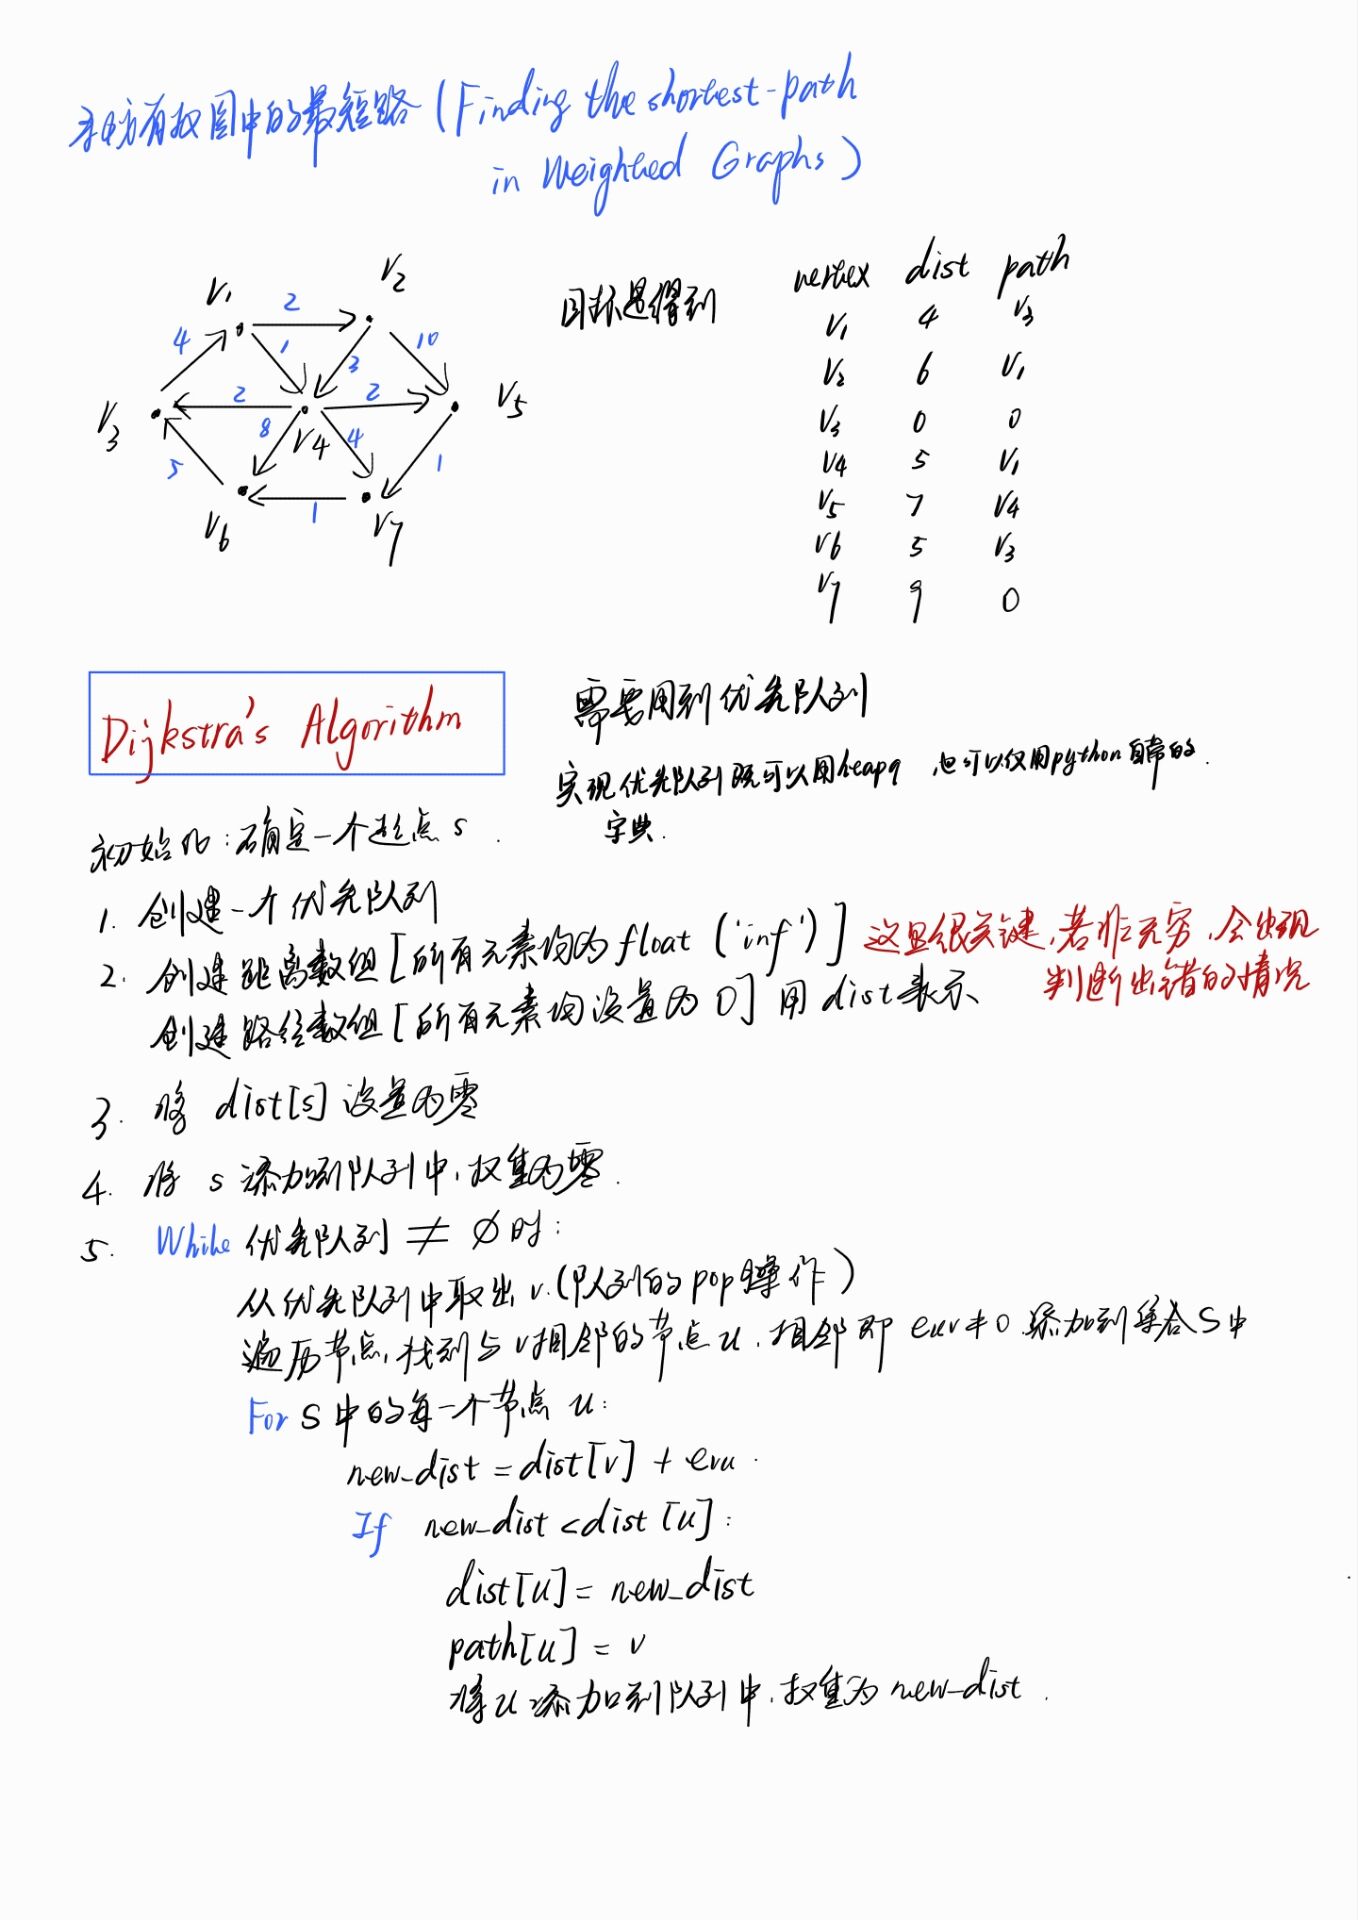 寻访有权图中的最短路(Finding the shortest-path
in Weighted Graphs)
V1 2 V2
4 1 3 10
目标是得到
V3 2 2 V5
8 V4 4
5 1
V6 1 V7
vertex dist path
V1 4 V3
V2 6 V1
V3 0 0
V4 5 V1
V5 7 V4
V6 5 V3
V7 9 0
Dijkstra's Algorithm
需要用到优先队列
实现优先队列既可以用heapq,也可以仅用python自带的.
字典.
初始化:确定一个起点s.
1. 创建一个优先队列
2. 创建距离数组[所有元素均为float('inf')] 这里很关键,若非无穷,会出现
判断出错的情况
创建路径数组[所有元素均设置为0]用dist表示
3. 将 dist[s]设置为零
4. 将 s添加到队列中,权重为零.
5. While 优先队列 ≠ ∅时:
从优先队列中取出v.(队列的pop操作)
遍历节点,找到与v相邻的节点u,相邻即euv≠0.添加到集合S中
For S中的每一个节点u:
new_dist = dist[v] + evu.
If new_dist < dist[u]:
dist[u] = new_dist
path[u] = v
将u添加到队列中,权重为new_dist.